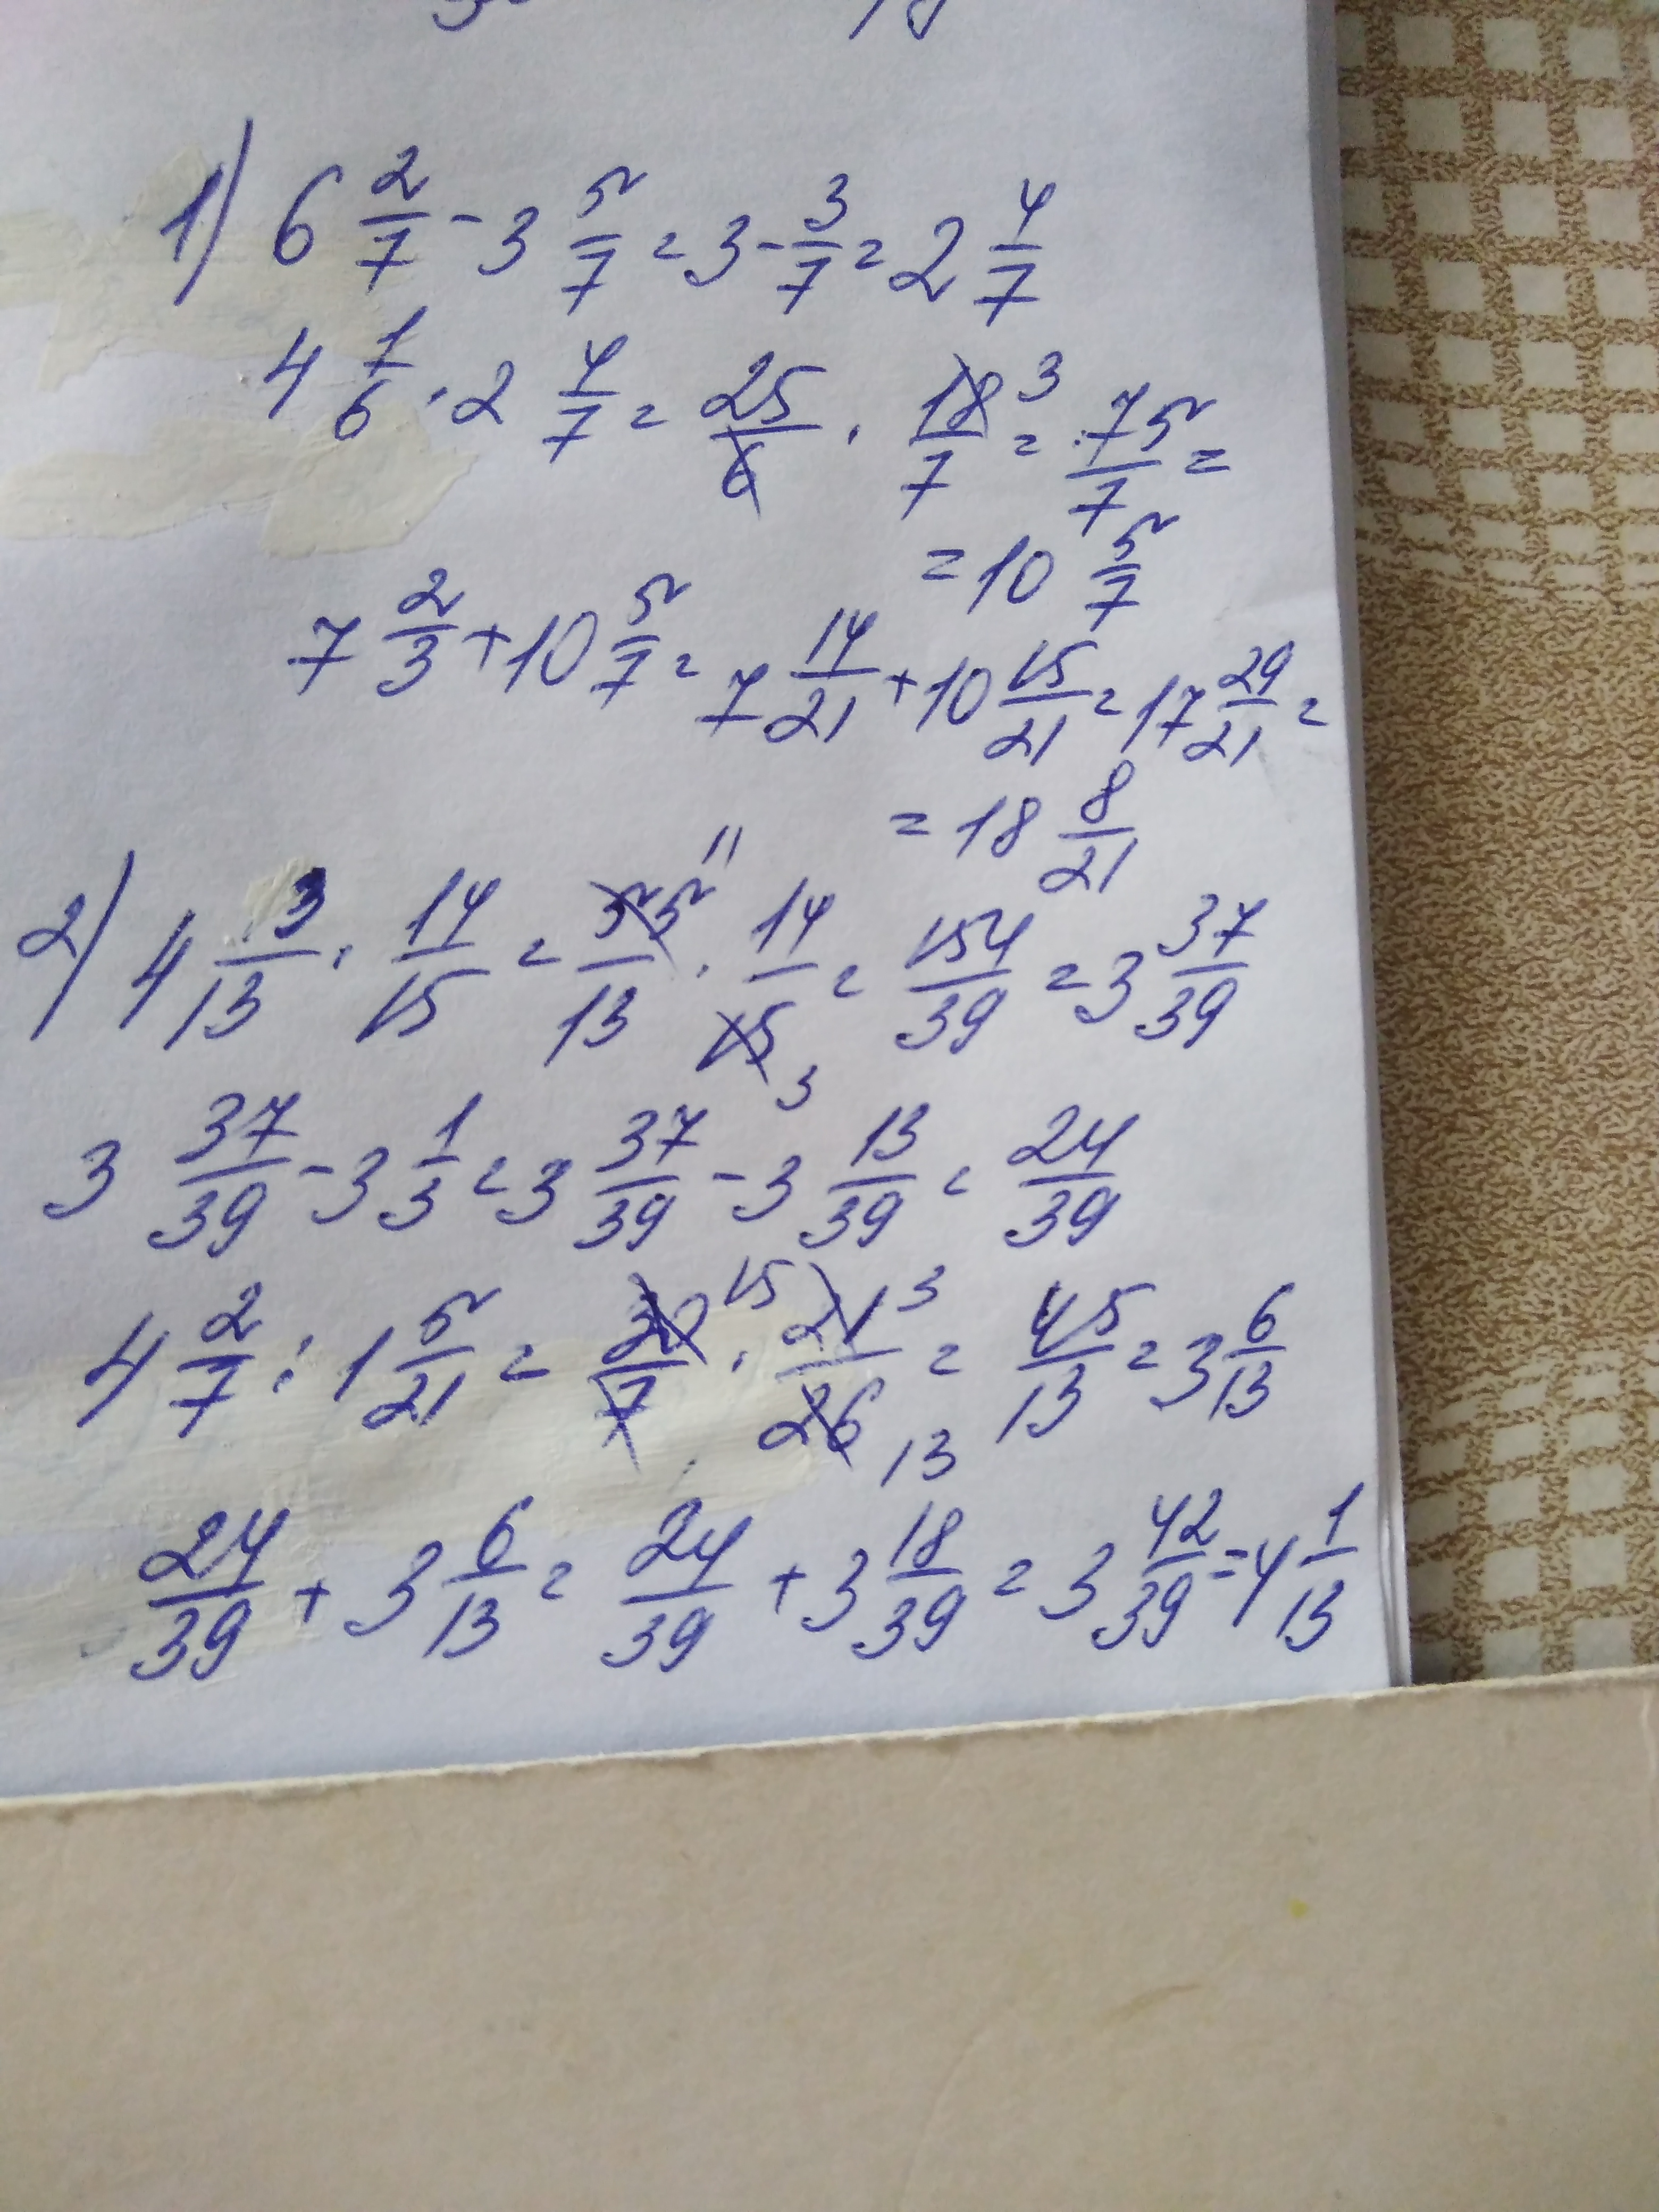 1) 6 2/7 - 3 5/7 = 3 - 3/7 = 2 4/7
4 1/6 · 2 4/7 = 25/6 · 18/7 3 = 75/7 =
= 10 5/7
7 2/3 + 10 5/7 = 7 14/21 + 10 15/21 = 17 29/21 =
= 18 8/21
2) 4 3/13 · 14/15 = 55/13 11 · 14/15 3 = 154/39 = 3 37/39
3 37/39 - 3 1/3 = 3 37/39 - 3 13/39 = 24/39
4 2/7 : 1 5/21 = 30/7 15 · 21/26 3 13 = 45/13 = 3 6/13
24/39 + 3 6/13 = 24/39 + 3 18/39 = 3 42/39 = 4 1/13